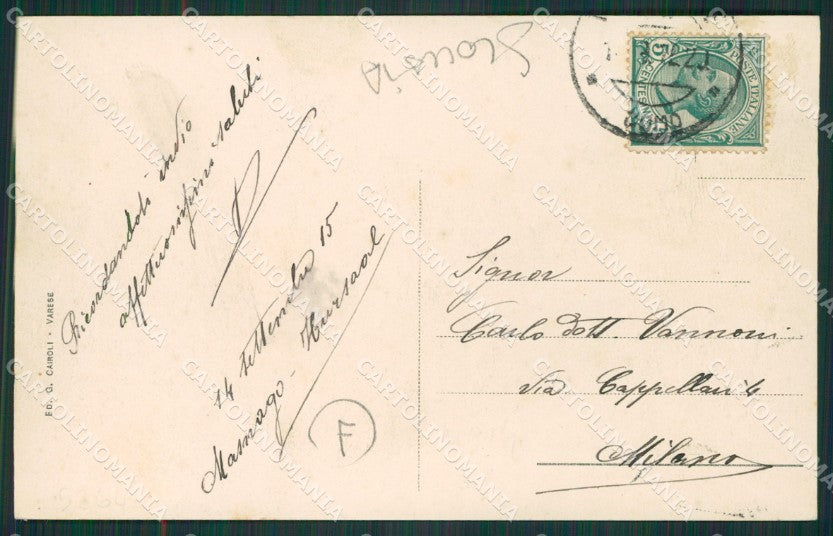 Ricordandoti invio
affettuosissimi saluti
14 settembre 15
Masnago - Kursaal
F
ED. G. CAIROLI - VARESE
POSTE ITALIANE
5
Signor
Carlo dott. Vannoni
via Cappellari 4
Milano
CARTOLINOMANIA